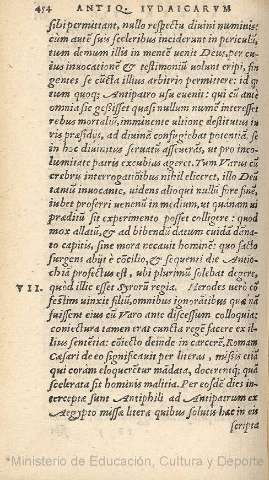 454 ANTIQ. IVDAICARVM
sibi permittant, nullo respectu diuini numinis:
cùm autē suis sceleribus inciderunt in periculū,
tum demum illi in mentē uenit Deus, per cu
ius inuocationē & testimoniū uolunt eripi, fin
gentes se cūcta illius arbitrio permittere: id q
tum quoq; Antipatro usu euenit: qui cū antè
omnia sic gessisset quasi nullum numē interesset
rebus mortaliū, imminente ultione destitutus iu
ris præsidys, ad diuinā confugiebat potentiā, se
in hoc diuinitus seruatū asseuerās, ut pro inco-
lumitate patris excubias ageret. Tum Varus cū
crebris interrogatiōibus nihil eliceret, illo Deū
tantū inuocante, uidens alioqui nulli fore finē,
iubet proferri uenenū in medium, ut quánam ui
prædiū sit experimento posset colligere: quod
mox allatū, & ad bibendū datum cuidā dāna-
to capitis, sine mora necauit hominē: quo facto
surgens abijt è cōcilio, & sequenti die Antio-
chiā profectus est, ubi plurimū solebat degere,
VII. quòd illic esset Syroru̅ regia. Herodes uerò cō
festim uinxit filiū, omnibus ignorātibus quæ nā
fuissent eius cū Varo ante discessum colloquia:
coniectura tamen erat cuncta regē facere ex il-
lius sentētia: cōiecto deinde in carcerē, Romam
Cæsari de eo significauit per literas, missis etiā
qui coram eloquerētur mādata, docerentq́; quā
scelerata sit hominis malitia. Per eosdē dies in-
terceptæ sunt Antiphili ad Antipatrum ex
Aegypto missæ literæ quibus solutis hæc in eis
scripta
*Ministerio de Educación, Cultura y Deporte